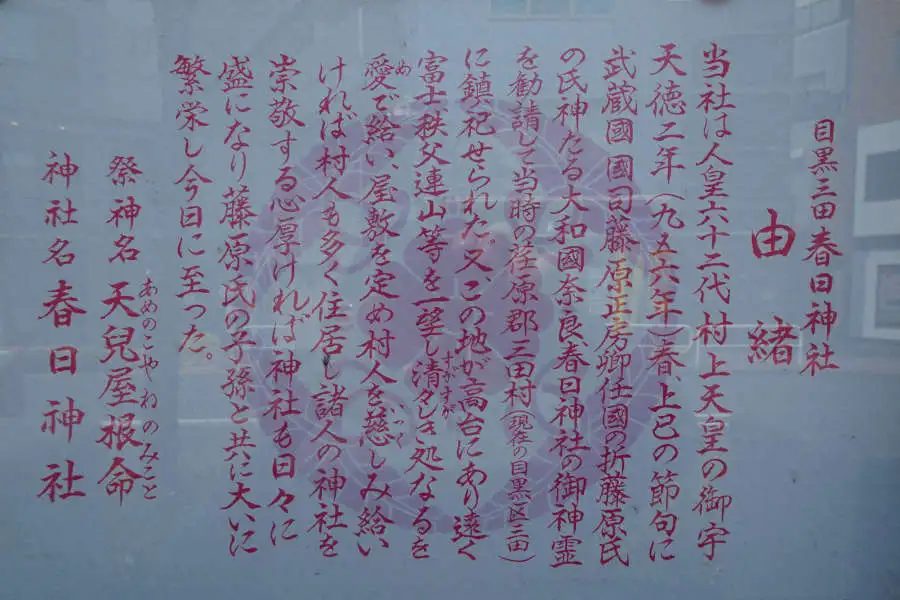 目黒三田春日神社
由緒
当社は人皇六十二代村上天皇の御宇
天徳二年(九五六年)春、上巳の節句に
武蔵國國司藤原正房卿任國の折藤原氏
の氏神たる大和國奈良春日神社の御神霊
を勧請して当時の荏原郡三田村(現在の目黒区三田)
に鎮祀せられた。又この地が高台にあり遠く
富士秩父連山等を一望し清々しき処なるを
愛で給い、屋敷を定め村人を慈しみ給い
ければ村人も多く住居し諸人の神社を
崇敬する心厚ければ神社も日々に
盛になり藤原氏の子孫と共に大いに
繁栄し今日に至った。
祭神名 天兒屋根命
あめのこやねのみこと
神社名 春日神社